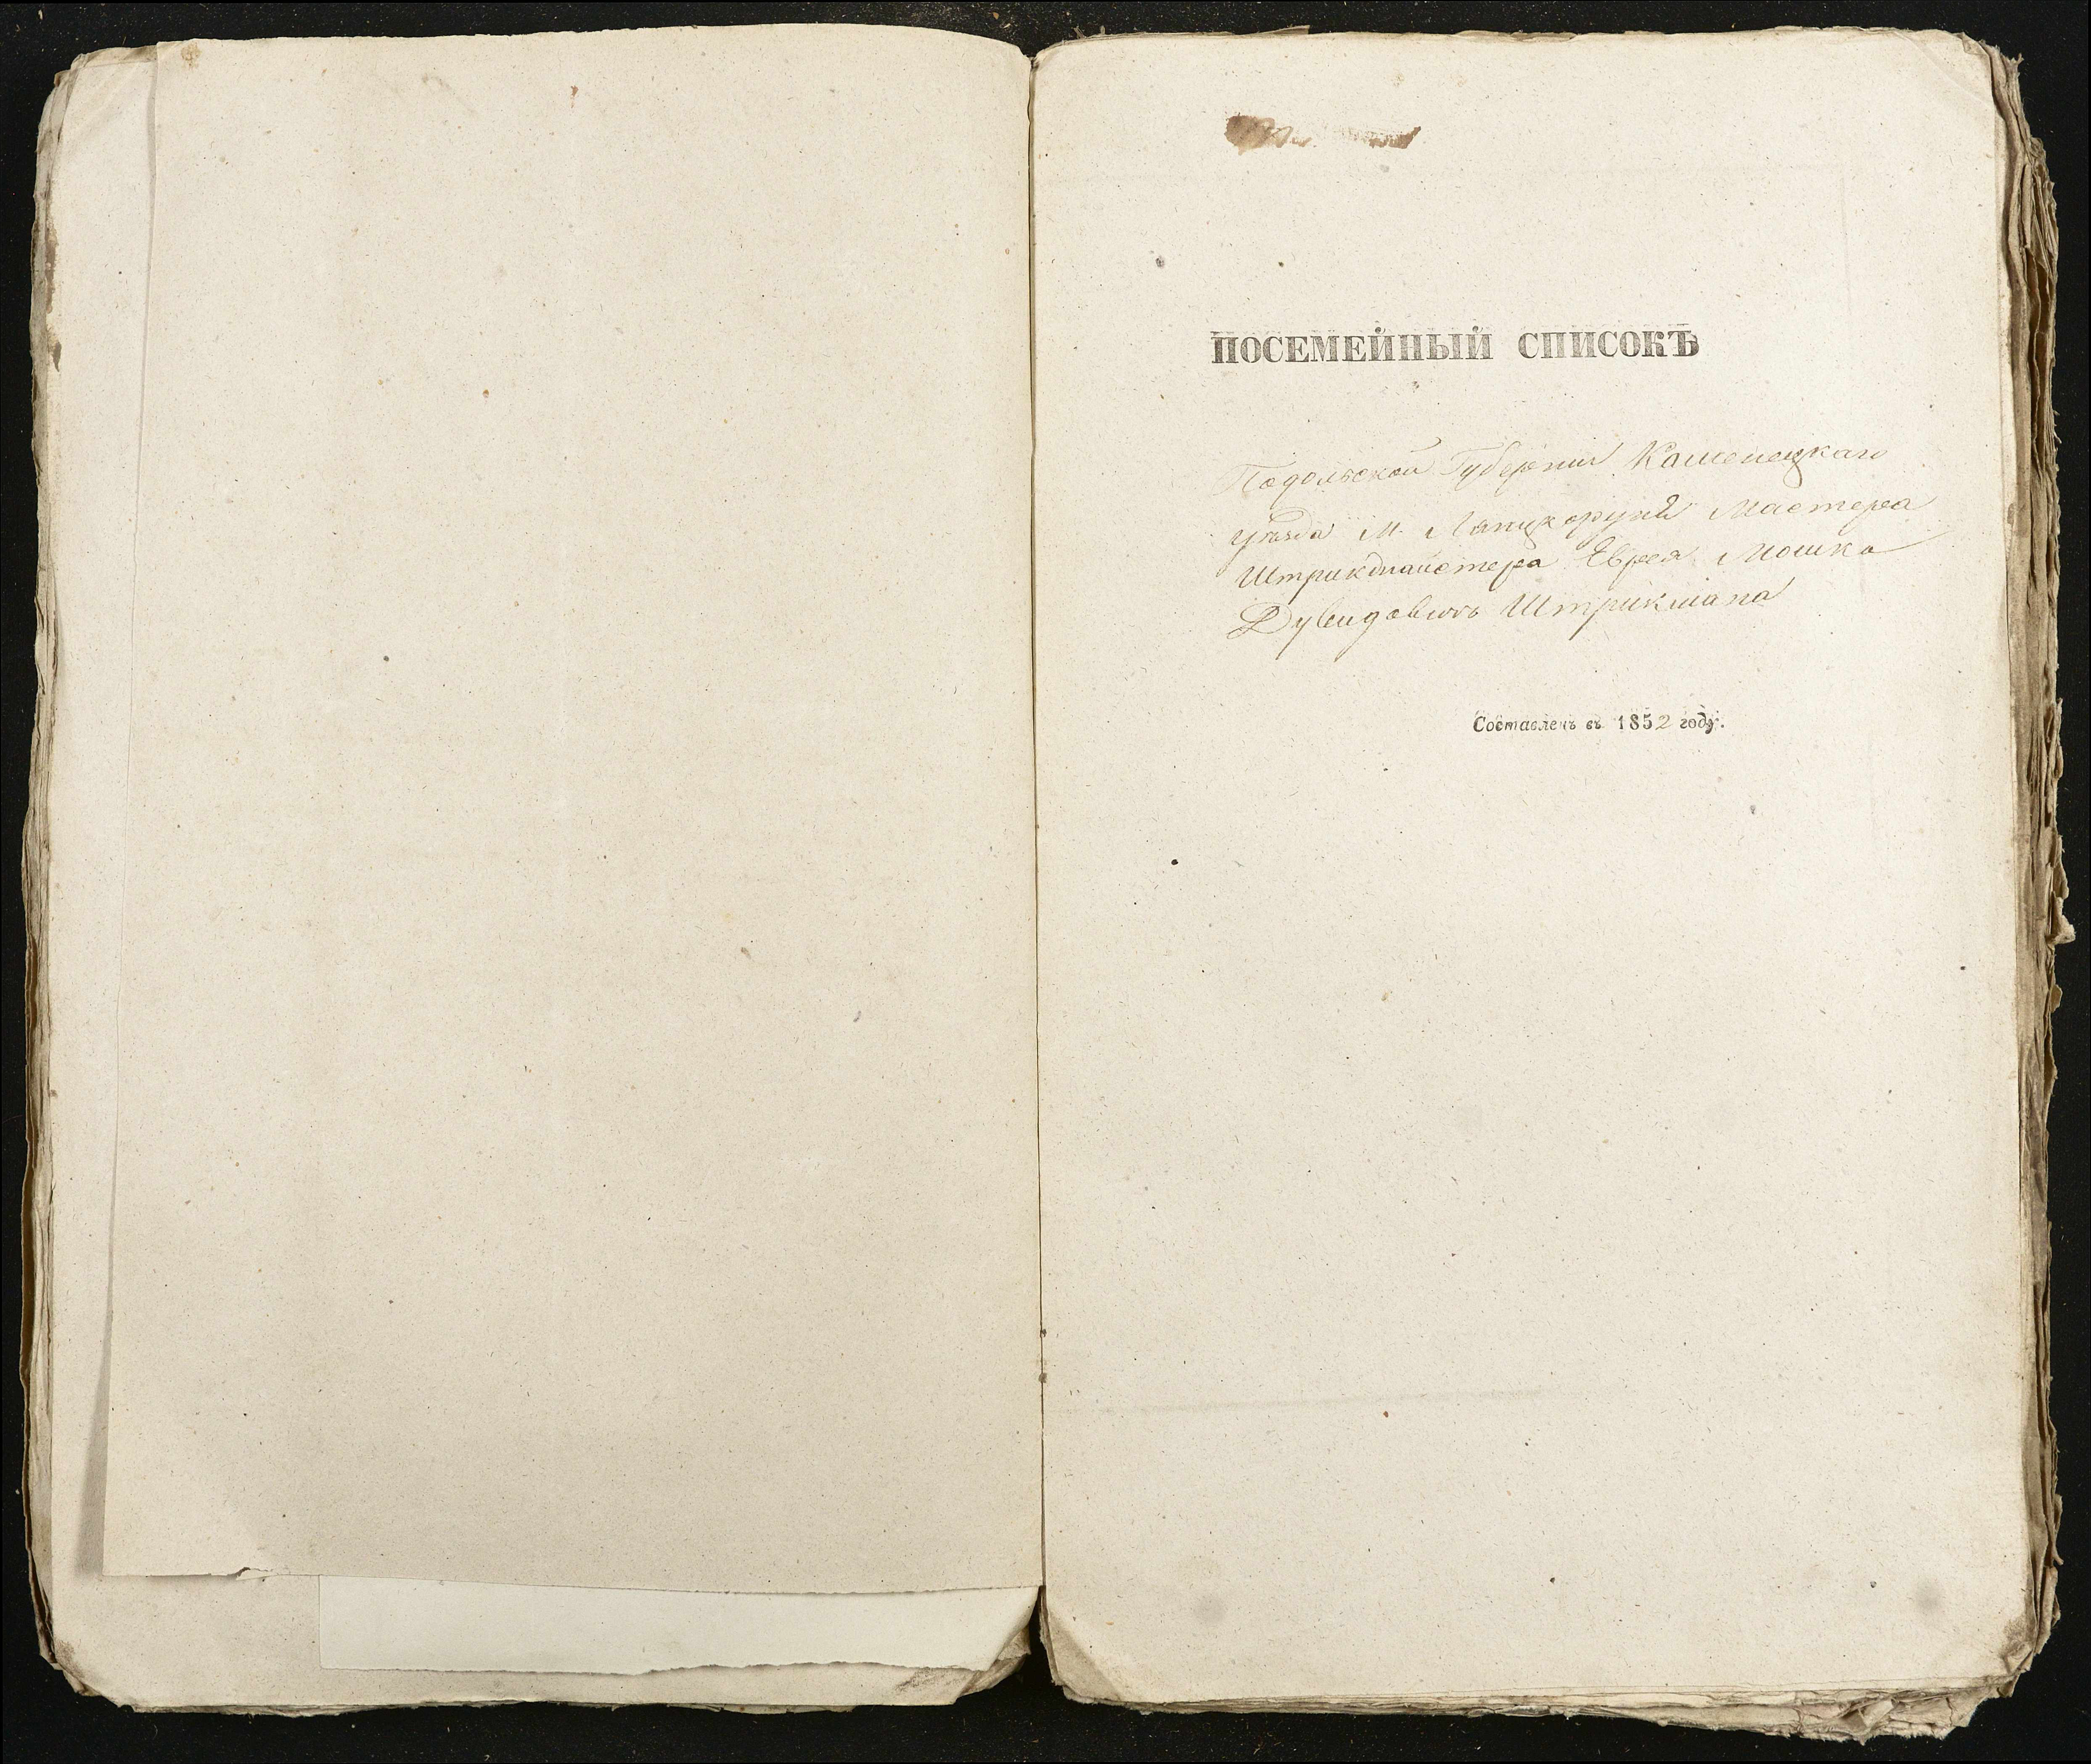 ПОСЕМЕЙНЫЙ СПИСОКЪ
Подольской Губерніи Каменецкаго
уѣзда м. Лянцкоруня мастера
Штрикмайстера Еврея Мошка
Дувидовичъ Штрикмана
Составленъ въ 1852 году.